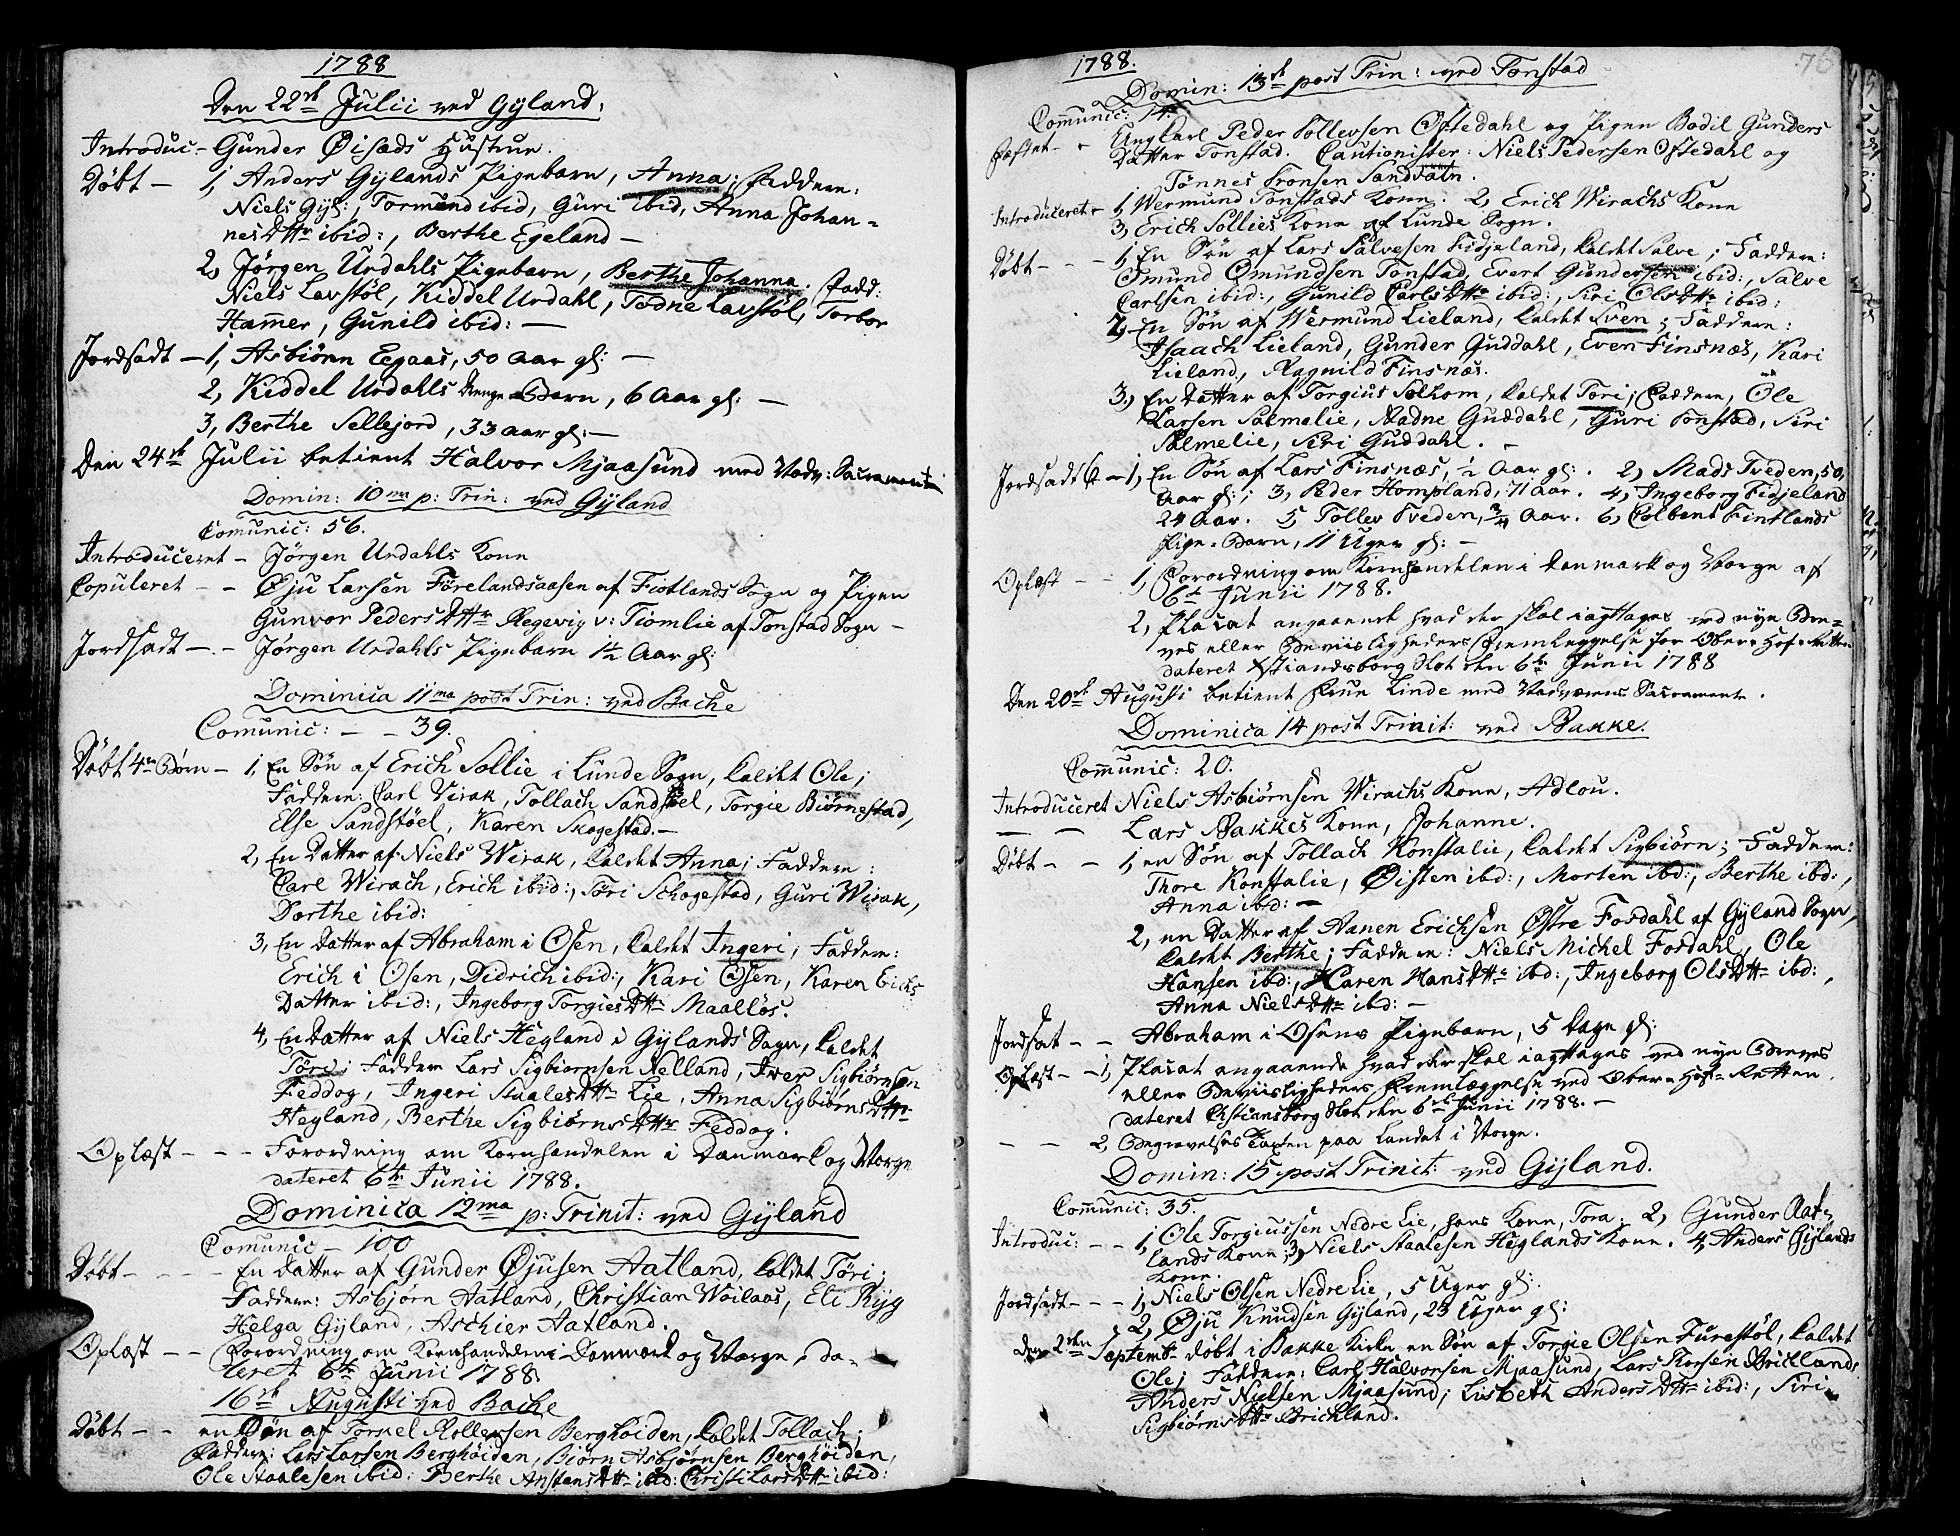 1788
Den 22de Julii ved Gyland;
Introduc – Gunder Øisæds Hustrue.
Døbt – 1, Anders Gylands Pigebarn, Anna; Faddere:
Niels Gyl:, Tormund ibid, Guri ibid, Anna Johan-
nes Dttr ibid:, Berthe Egeland –
2, Jørgen Urdahls Pigebarn, Berthe Johanna. Fadd:
Niels Lavstøl, Kiddel Urdahl, Todne Lavstøl, Torbor
Hamer, Gunild ibid: –
Jordsadt – 1, Asbiørn Egaas, 50 Aar gl: –
2, Kiddel Urdahls Drenge Barn, 6 Aar gl: –
3, Berthe Sellejord, 33 Aar gl: –
Den 24de Julii betient Halvor Mjaasund med Nadv: Sacramente
Domin: 10ma p: Trin: ved Gyland
Comunic: 56.
Introduceret – Jørgen Urdahls Kone
Copuleret – – Øju Larsen Førelandsaasen af Fiotlands Sogn og Pigen
Gunvor Peders Dttr Regevig v: Tiomlie af Tonstad Sogn –
Jordsadt – . – Jørgen Urdahls Pigebarn 1½ Aar gl:
Dominica 11ma post Trin: ved Bache
Comunic: – – 39.
Døbt 4re Børn – 1, En Søn af Erich Sollie i Lunde Sogn, kaldet Ole;
Faddere: Carl Virak, Tollach Sandstøel, Torgie Biørnestad,
Else Sandstøel, Karen Skogestad. –
2, En Datter af Niels Wirak, kaldet Anna; Faddere:
Carl Wirach, Erich ibid:, Töri Schogestad, Guri Wirak,
Dorthe ibid:
3, En Datter af Abraham i Osen, kaldet Ingeri; Faddere:
Erich i Osen, Didrich ibid:, Kari Osen, Karen Erichs
Datter ibid:, Ingeborg Torgies Dttr Maalløs.
4, En Datter af Niels Hegland i Gylands Sogn, kaldet
Töre; Faddere Lars Sigbiornsen Nelland, Iver Sigbiørnsen
Feddog, Ingeri Staales Dttr Lie, Anna Sigbiørns Dttr
Hegland, Berthe Sigbiørns Dttr Feddog.
Oplæst – – – Forordning om Kornhandelen i Danmark og Norge
dateret 6te Junii 1788.
Dominica 12ma p: Trinit: ved Gyland
Comunic – 100
Døbt – – – – En Datter af Gunder Øjusen Aatland, kaldet Töri;
Faddere: Asbjørn Aatland, Christian Woilaas, Eli Ryg
Helga Gyland, Aschier Aatland.
Oplæst – – Forordning om Kornhandelen i Danmark og Norge, da-
teret 6te Junii 1788
16de Augusti ved Bache
Døbt – – en Søn af Tornel Rollersen Berghøiden, kaldet Tollach;
Faddere: Lars Larsen Berghöiden, Biørn Asbjørnsen Berghøiden,
Ole Staalesen ibid: Berthe Anstens Dttr ibid: Christi Lars Dttr ibid:
76
1788.
Domin: 13de post Trin: ved Tonstad
Comunic: 14.
Fæstet – – Ungkarl Peder Tollevsen Oftedahl og Pigen Bodil Gunders
Datter Tonstad. Cautionister: Niels Pedersen Oftedahl og
Tønnes Tronsen Sandvatn.
Introduceret – 1, Wermund Tonstads Kone. 2, Erich Wirachs Kone
3, Erich Sollies Kone af Lunde Sogn.
Døbt – – – 1, En Søn af Lars Salvesen Fidjeland, kaldet Salve; Faddere:
Omund Omundsen Tonstad, Evert Gundersen ibid:, Salve
Carlsen ibid:, Gunild Carls Dttr ibid:, Siri Ols Dttr ibid:
2, En Søn af Wermund Lieland, kaldet Sven; Faddere:
Isaach Lieland, Gunder Guddahl, Even Finsnæs, Kari
Lieland, Ragnild Finsnæs.
3, En Datter af Torgius Solhom, kaldet Tori; Faddere, Ole
Larsen Salmelie, Aadne Guddahl, Guri Tonstad, Siri
Salmelie, Siri Guddahl. –
Jordsadt 6 – 1, En Søn af Lars Finsnæs, ½ Aar gl:. 2, Mads Tveden, 50,
Aar gl:; 3, Peder Hompland, 71 Aar. 4, Ingeborg Fidjeland
24 Aar. 5, Tollev Tveden, ¾ Aar. 6, Colbent Fintlands
Pige-Barn, 11 Uger gl: –
Oplæst – – 1, Forordning om Kornhandelen i Danmark og Norge af
6te Junii 1788.
2, Placat angaaende hvad der skal iagttages ved nye Bee-
ves eller Beviisligheders Fremlæggelse for Ober-Hof-Retten
dateret Xstiandsborg Slot den 6te Junii 1788
Den 20de Augusti betient Frue Linde med Nadverens Sacramente.
Dominica 14 post Trinit: ved Bakke.
Comunic: 20.
Introduceret Niels Asbiørnsen Wirachs Kone, Adlou.
– – Lars Bakkes Kone, Johanne.
Døbt – – 1, en Søn af Tollach Konstalie, kaldet Sigbiørn; Faddere:
Thore Konstalie, Øisten ibd:, Morten ibd:, Berthe ibd:,
Anna ibd: –
2, en Datter af Aanen Erichsen Østre Fosdahl af Gyland Sogn,
kaldet Berthe; Faddere: Niels Michel Fosdahl, Ole
Hansen ibd:, Karen Hans Dttr ibd:, Ingeborg Ols Dttr ibd:,
Anna Niels Dttr ibd: –
Jordsat – – Abraham i Osens Pigebarn, 5 Dage gl:
Oplæst – – 1, Placat angaaende hvad der skal iagttages ved nye Beeves
eller Beviisligheders Fremlæggelse ved Ober-Hoff-Retten.
dateret Christiansborg Slot den 6te Junii 1788. –
– – 2, Begravelses Taxten paa Landet i Norge.
Domin: 15 post Trinit: ved Gyland.
Comunic: 35.
Introduc: – – 1, Ole Torgiussen Nedre Lie, hans Kone, Tora; 2, Gunder Aat-
lands Kone; 3, Niels Staalesen Heglands Kone. 4, Anders Gylands
Kone.
Jordsadt – – – 1, Niels Olsen Nedre Lie, 5 Uger gl:.
2, Øju Knudsen Gyland, 23 Uger gl:
den 2den Septemb: døbt i Bakke Kirke en Søn af Torgie Olsen Furestøl, kaldet
Ole; Faddere: Carl Halvorsen Mjaasund, Lars Torsen Bricklands
Anders Nielsen Mjaasund; Lisbeth Anders Dttr ibid:, Siri
Sigbiørns Dttr Brickland.